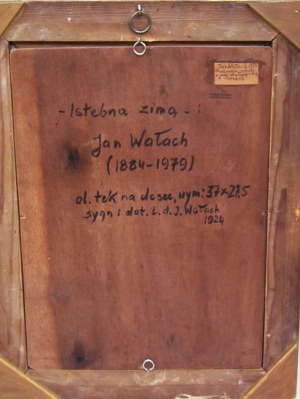 - Istebna zimą - :
Jan Wałach
(1884-1979)
ol. tek na desce, wym: 37x27,5
sygn i dat. L.d. J. Wałach
1924
Jan Wałach